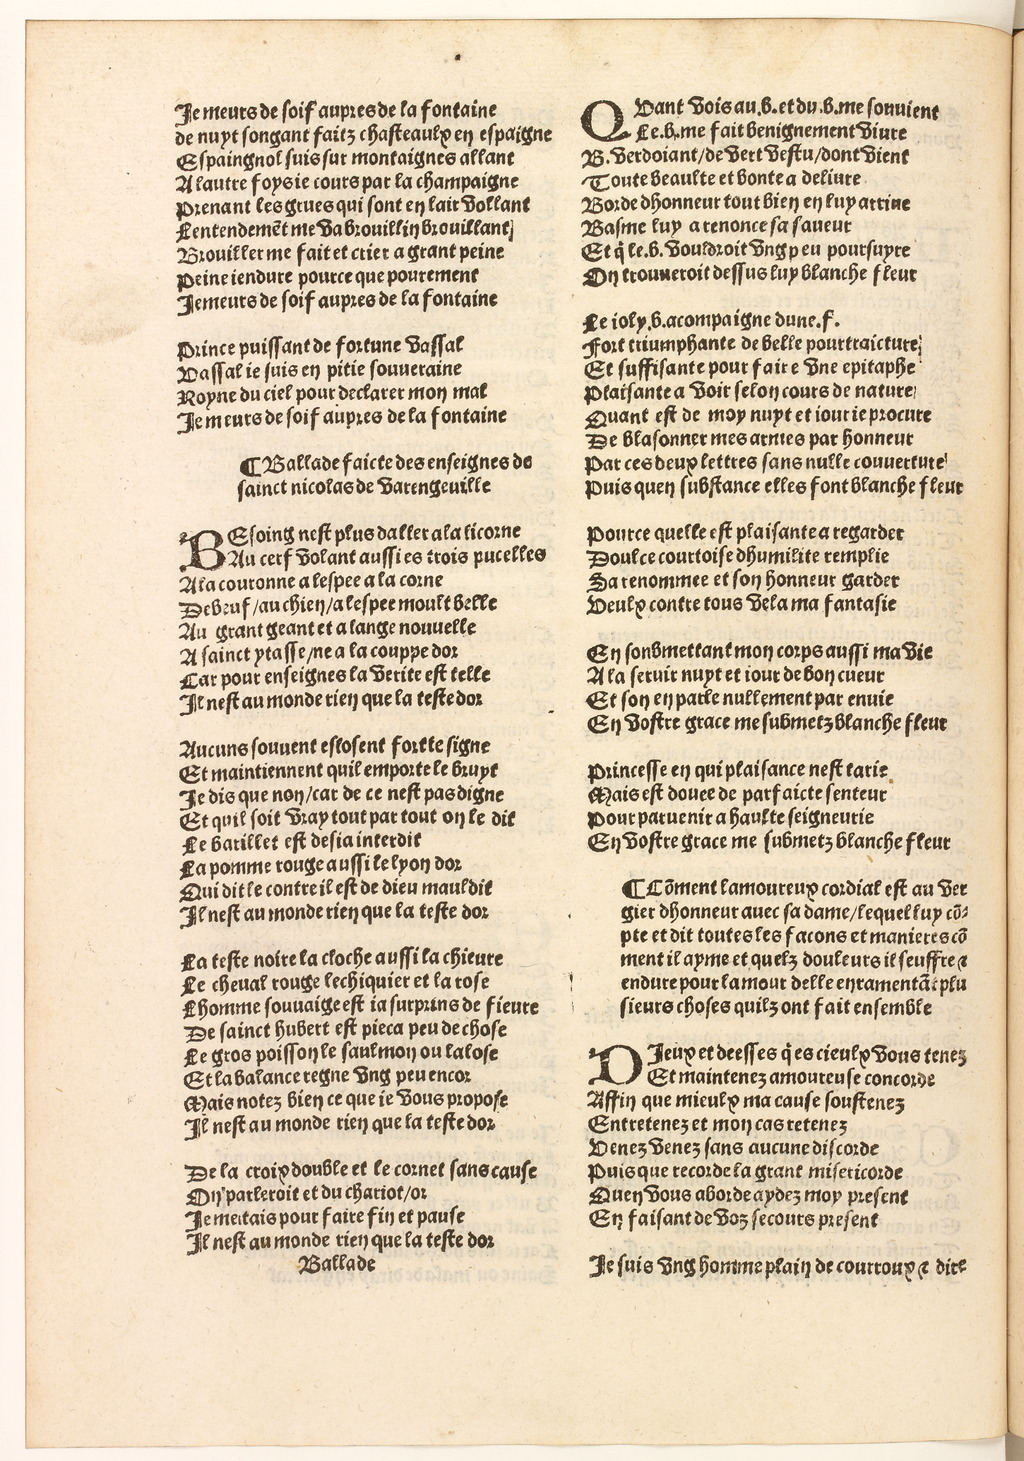 Je meurs de soif aupres de la fontaine
de nuyt songant faitz chasteaulx en espaigne
Espaingnol suis sur montaignes allant
A lautre foys ie cours par la champaigne
Prenant les grues qui sont en lair vollant
Lentendemẽt me va brouillin brouillant
Brouiller me fait et crier a grant peine
Peine iendure pource que pourement
Je meurs de soif aupres de la fontaine
Prince puissant de fortune vassal
Vassal ie suis en pitie souueraine
Royne du ciel pour declarer mon mal
Je meurs de soif aupres de la fontaine
¶ Ballade faicte des enseignes de
sainct nicolas de varengeuille
BEsoing nest plus daller a la licorne
Au cerf volant aussi es trois pucelles
A la couronne a lespee a la corne
De beuf/au chien/a lespee moult belle
Au grant geant et a lange nouuelle
A sainct ytasse/ne a la couppe dor
Car pour enseignes la verite est telle
Il nest au monde rien que la teste dor
Aucuns souuent eslosent fort le signe
Et maintiennent quil emporte le bruyt
Je dis que non/car de ce nest pas digne
Et quil soit vray tout par tout on le dit
Le barillet est desia interdit
La pomme rouge aussi le lyon dor
Qui dit le contre il est de dieu mauldit
Il nest au monde rien que la teste dor
La teste noire la cloche aussi la chieure
Le cheual rouge lechiquier et la rose
Lhomme souuaige est ia surprins de fieure
De sainct hubert est pieca peu de chose
Le gros poisson le saulmon ou lalose
Et la balance regne vng peu encor
Mais notez bien ce que ie vous propose
Il nest au monde rien que la teste dor
De la croix double et le cornet sans cause
On parleroit et du chariot/or
Je me tais pour faire fin et pause
Il nest au monde rien que la teste dor
Ballade
QVant vois au .b. et du .b. me souuient
Le .b. me fait benignement viure
B. verdoiant/de vert vestu/dont vient
Toute beaulte et bonte a deliure
Borde dhonneur tout bien en luy arriue
Basme luy a renonce sa saueur
Et q̃ le .b. vouldroit vng peu poursuyre
On trouueroit dessus luy blanche fleur
Le ioly .b. acompaigne dune .f.
Fort triumphante de belle pourtraicture
Et suffisante pour faire vne epitaphe
Plaisante a voir selon cours de nature
Quant est de moy nuyt et iour ie procure
De blasonner mes armes par honneur
Par ces deux lettres sans nulle couuerture
Puis quen substance elles font blanche fleur
Pource quelle est plaisante a regarder
Doulce courtoise dhumilite remplie
Sa renommee et son honneur garder
Veulx contre tous vela ma fantasie
En soubmettant mon corps aussi ma vie
A la seruir nuyt et iour de bon cueur
Et son en parle nullement par enuie
En vostre grace me submetz blanche fleur
Princesse en qui plaisance nest tarie
Mais est douee de parfaicte senteur
Pour paruenir a haulte seigneurie
En vostre grace me submetz blanche fleur
¶ Cõment lamoureux cordial est au ver
gier dhonneur auec sa dame/lequel luy cõ⸗
pte et dit toutes les facons et manieres cõ
ment il ayme et quelz douleurs il seuffre ⁊
endure pour lamour delle en ramentãt plu
sieurs choses quilz ont fait ensemble
DIeux et deesses q̃ es cieulx vous tenez
Et maintenez amoureuse concorde
Affin que mieulx ma cause soustenez
Entretenez et mon cas retenez
Venez venez sans aucune discorde
Puis que recorde la grant misericorde
Quen vous aborde aydez moy present
En faisant de voz secours present
Je suis vng homme plain de courroux ⁊ dire